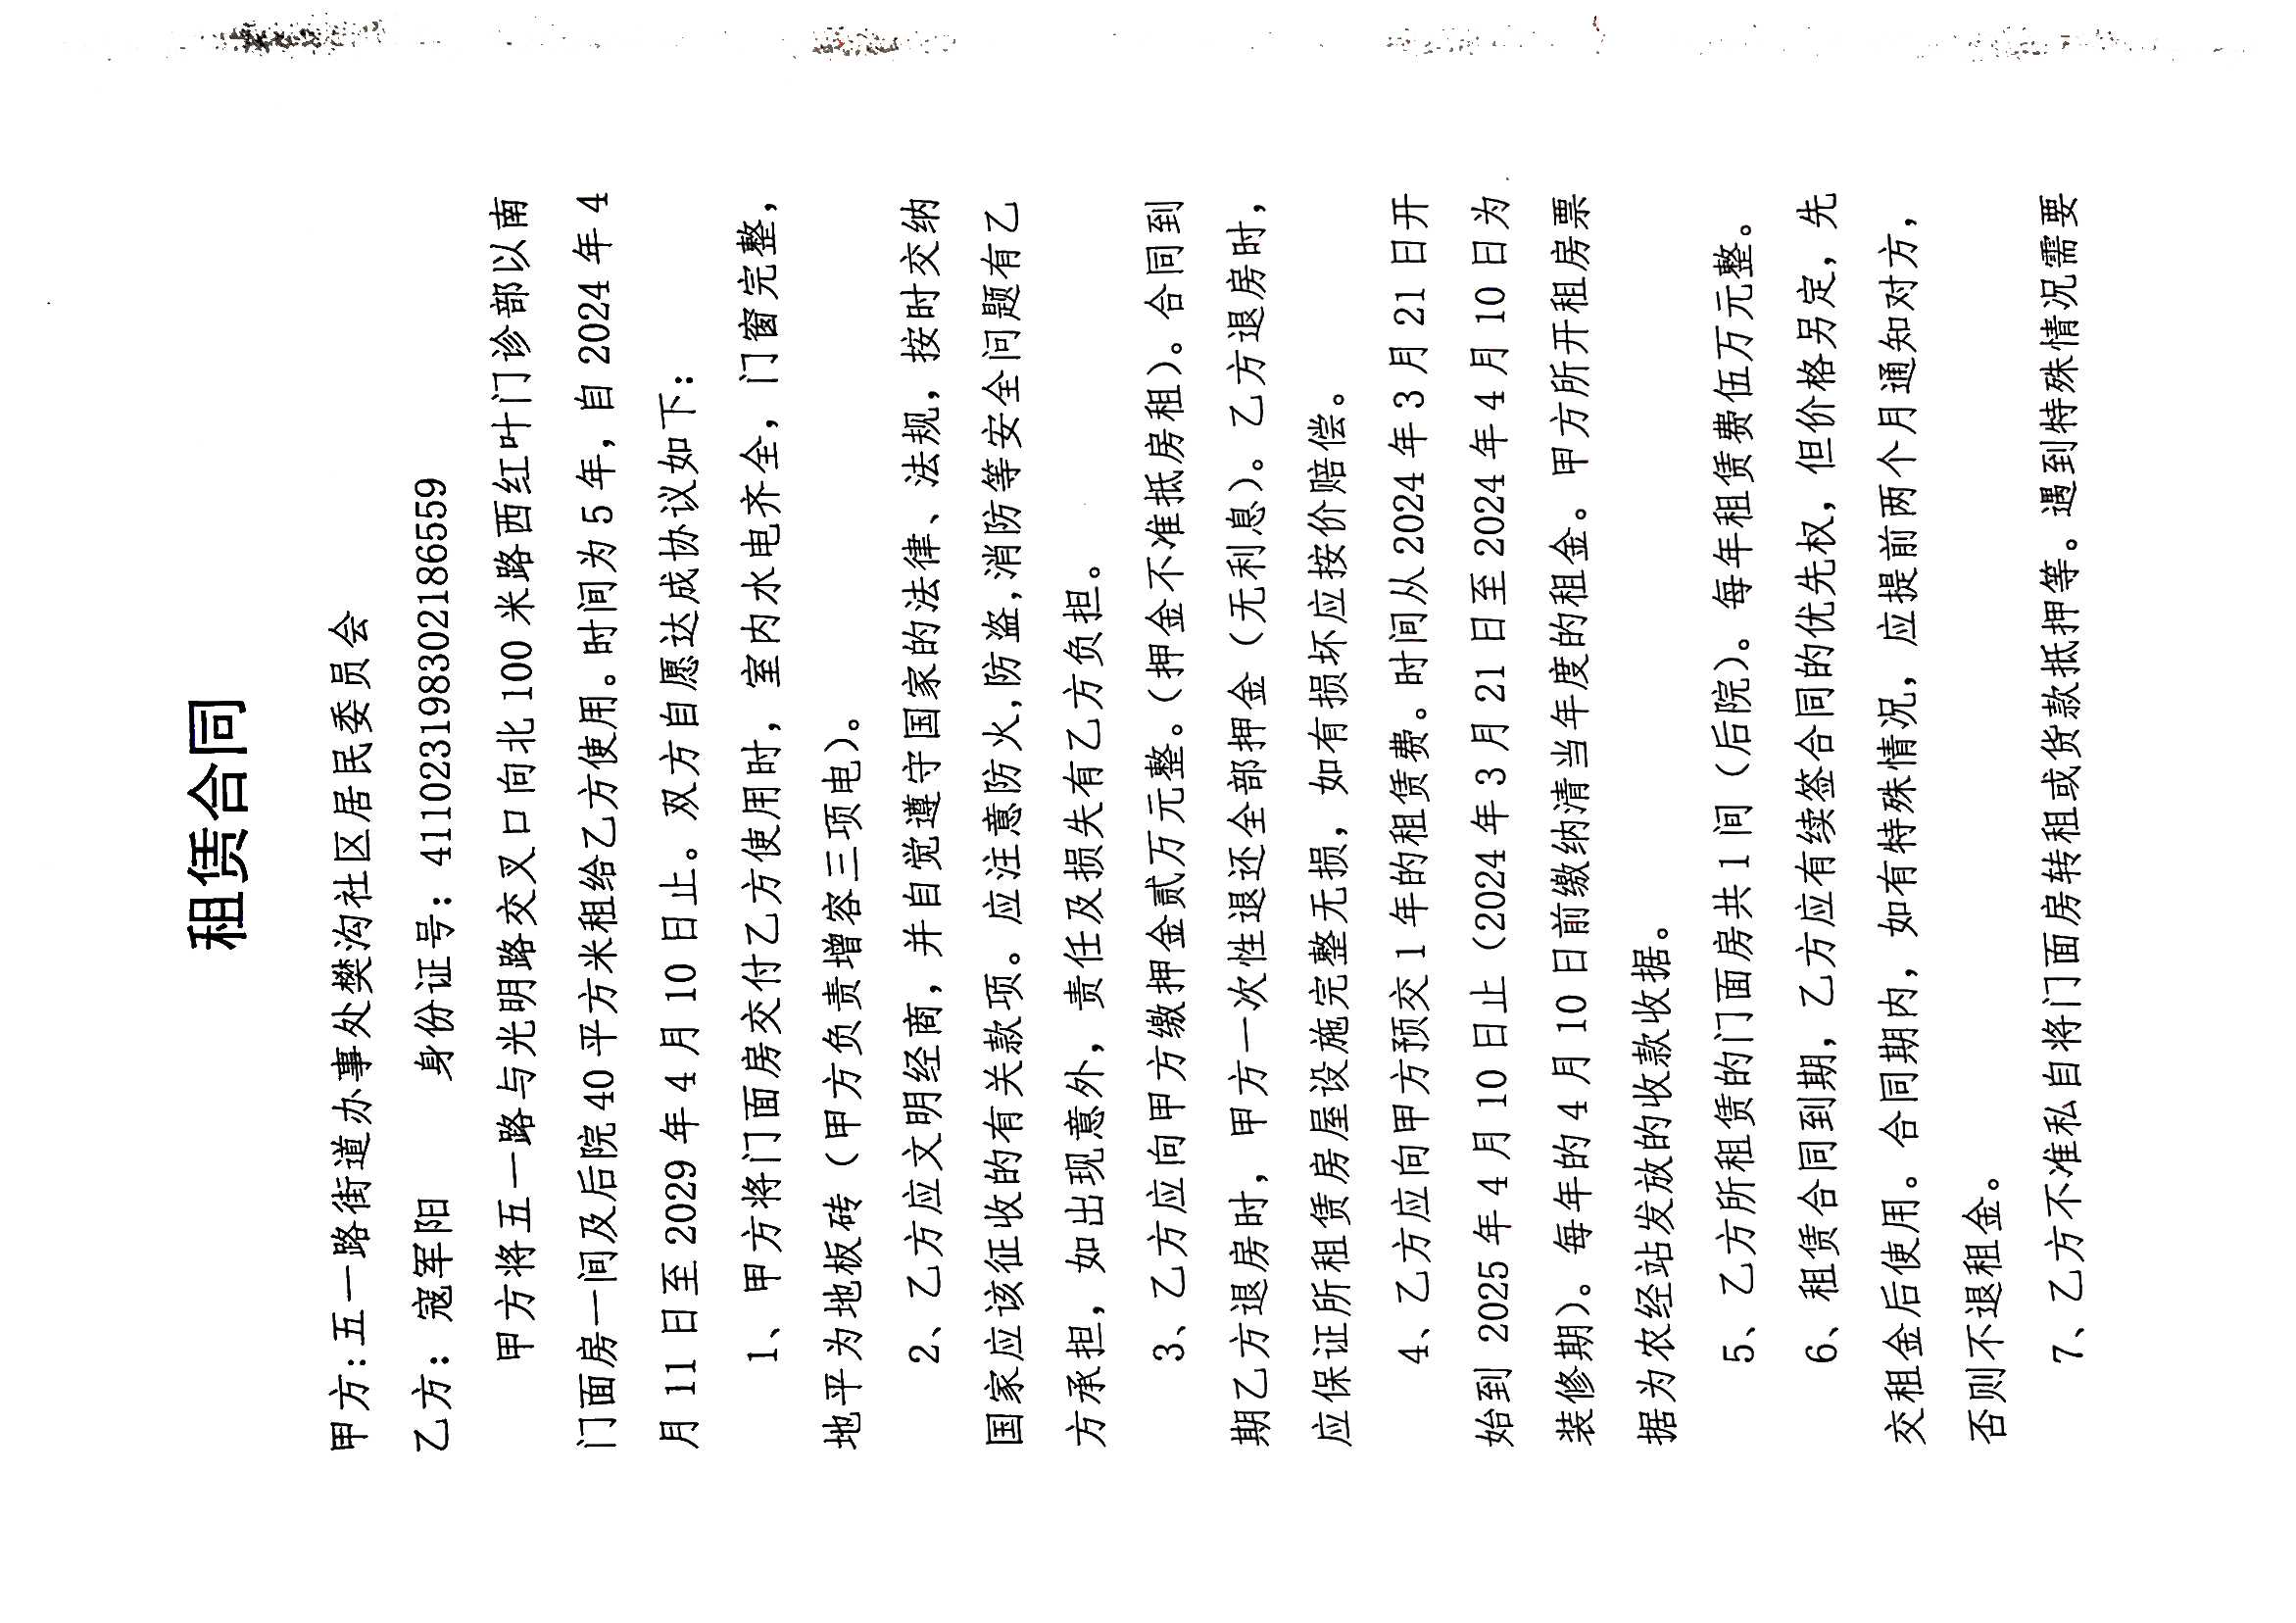 租赁合同
甲方:五一路街道办事处樊沟社区居民委员会
乙方：寇军阳　　身份证号：411023198302186559
甲方将五一路与光明路交叉口向北 100 米路西红叶门诊部以南
门面房一间及后院 40 平方米租给乙方使用。时间为 5 年，自 2024 年 4
月 11 日至 2029 年 4 月 10 日止。双方自愿达成协议如下：
1、甲方将门面房交付乙方使用时，室内水电齐全，门窗完整，
地平为地板砖（甲方负责增容三项电）。
2、乙方应文明经商，并自觉遵守国家的法律、法规，按时交纳
国家应该征收的有关款项。应注意防火,防盗,消防等安全问题有乙
方承担，如出现意外，责任及损失有乙方负担。
3、乙方应向甲方缴押金贰万元整。（押金不准抵房租）。合同到
期乙方退房时，甲方一次性退还全部押金（无利息）。乙方退房时，
应保证所租赁房屋设施完整无损，如有损坏应按价赔偿。
4、乙方应向甲方预交 1 年的租赁费。时间从 2024 年 3 月 21 日开
始到 2025 年 4 月 10 日止（2024 年 3 月 21 日至 2024 年 4 月 10 日为
装修期）。每年的 4 月 10 日前缴纳清当年度的租金。甲方所开租房票
据为农经站发放的收款收据。
5、乙方所租赁的门面房共 1 间（后院）。每年租赁费伍万元整。
6、租赁合同到期，乙方应有续签合同的优先权，但价格另定，先
交租金后使用。合同期内，如有特殊情况，应提前两个月通知对方，
否则不退租金。
7、乙方不准私自将门面房转租或货款抵押等。遇到特殊情况需要